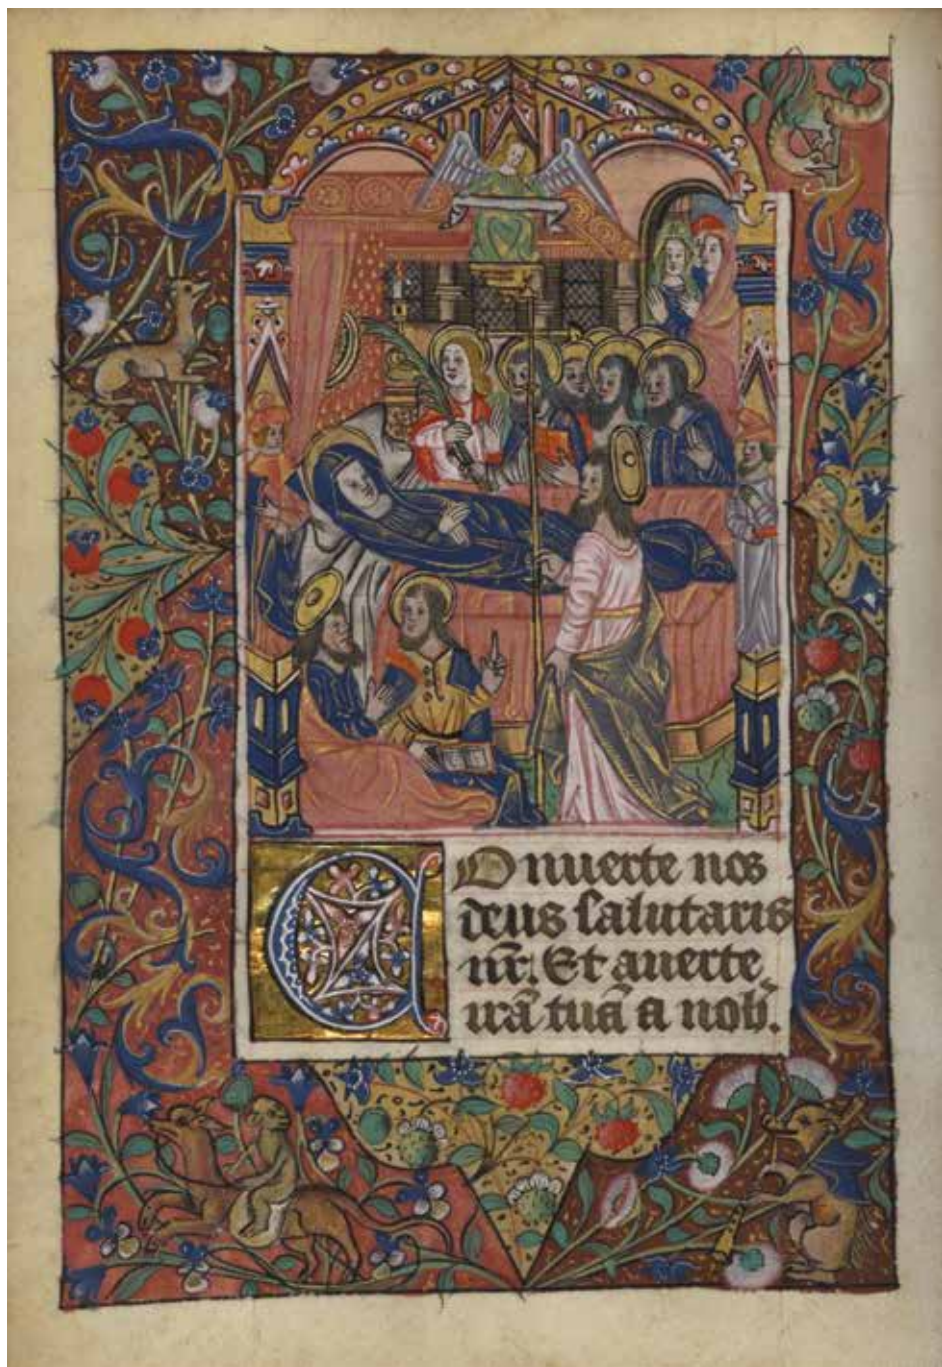 COnuerte nos
deus salutaris
nr̄. Et auerte
irā tuā a nob̄.